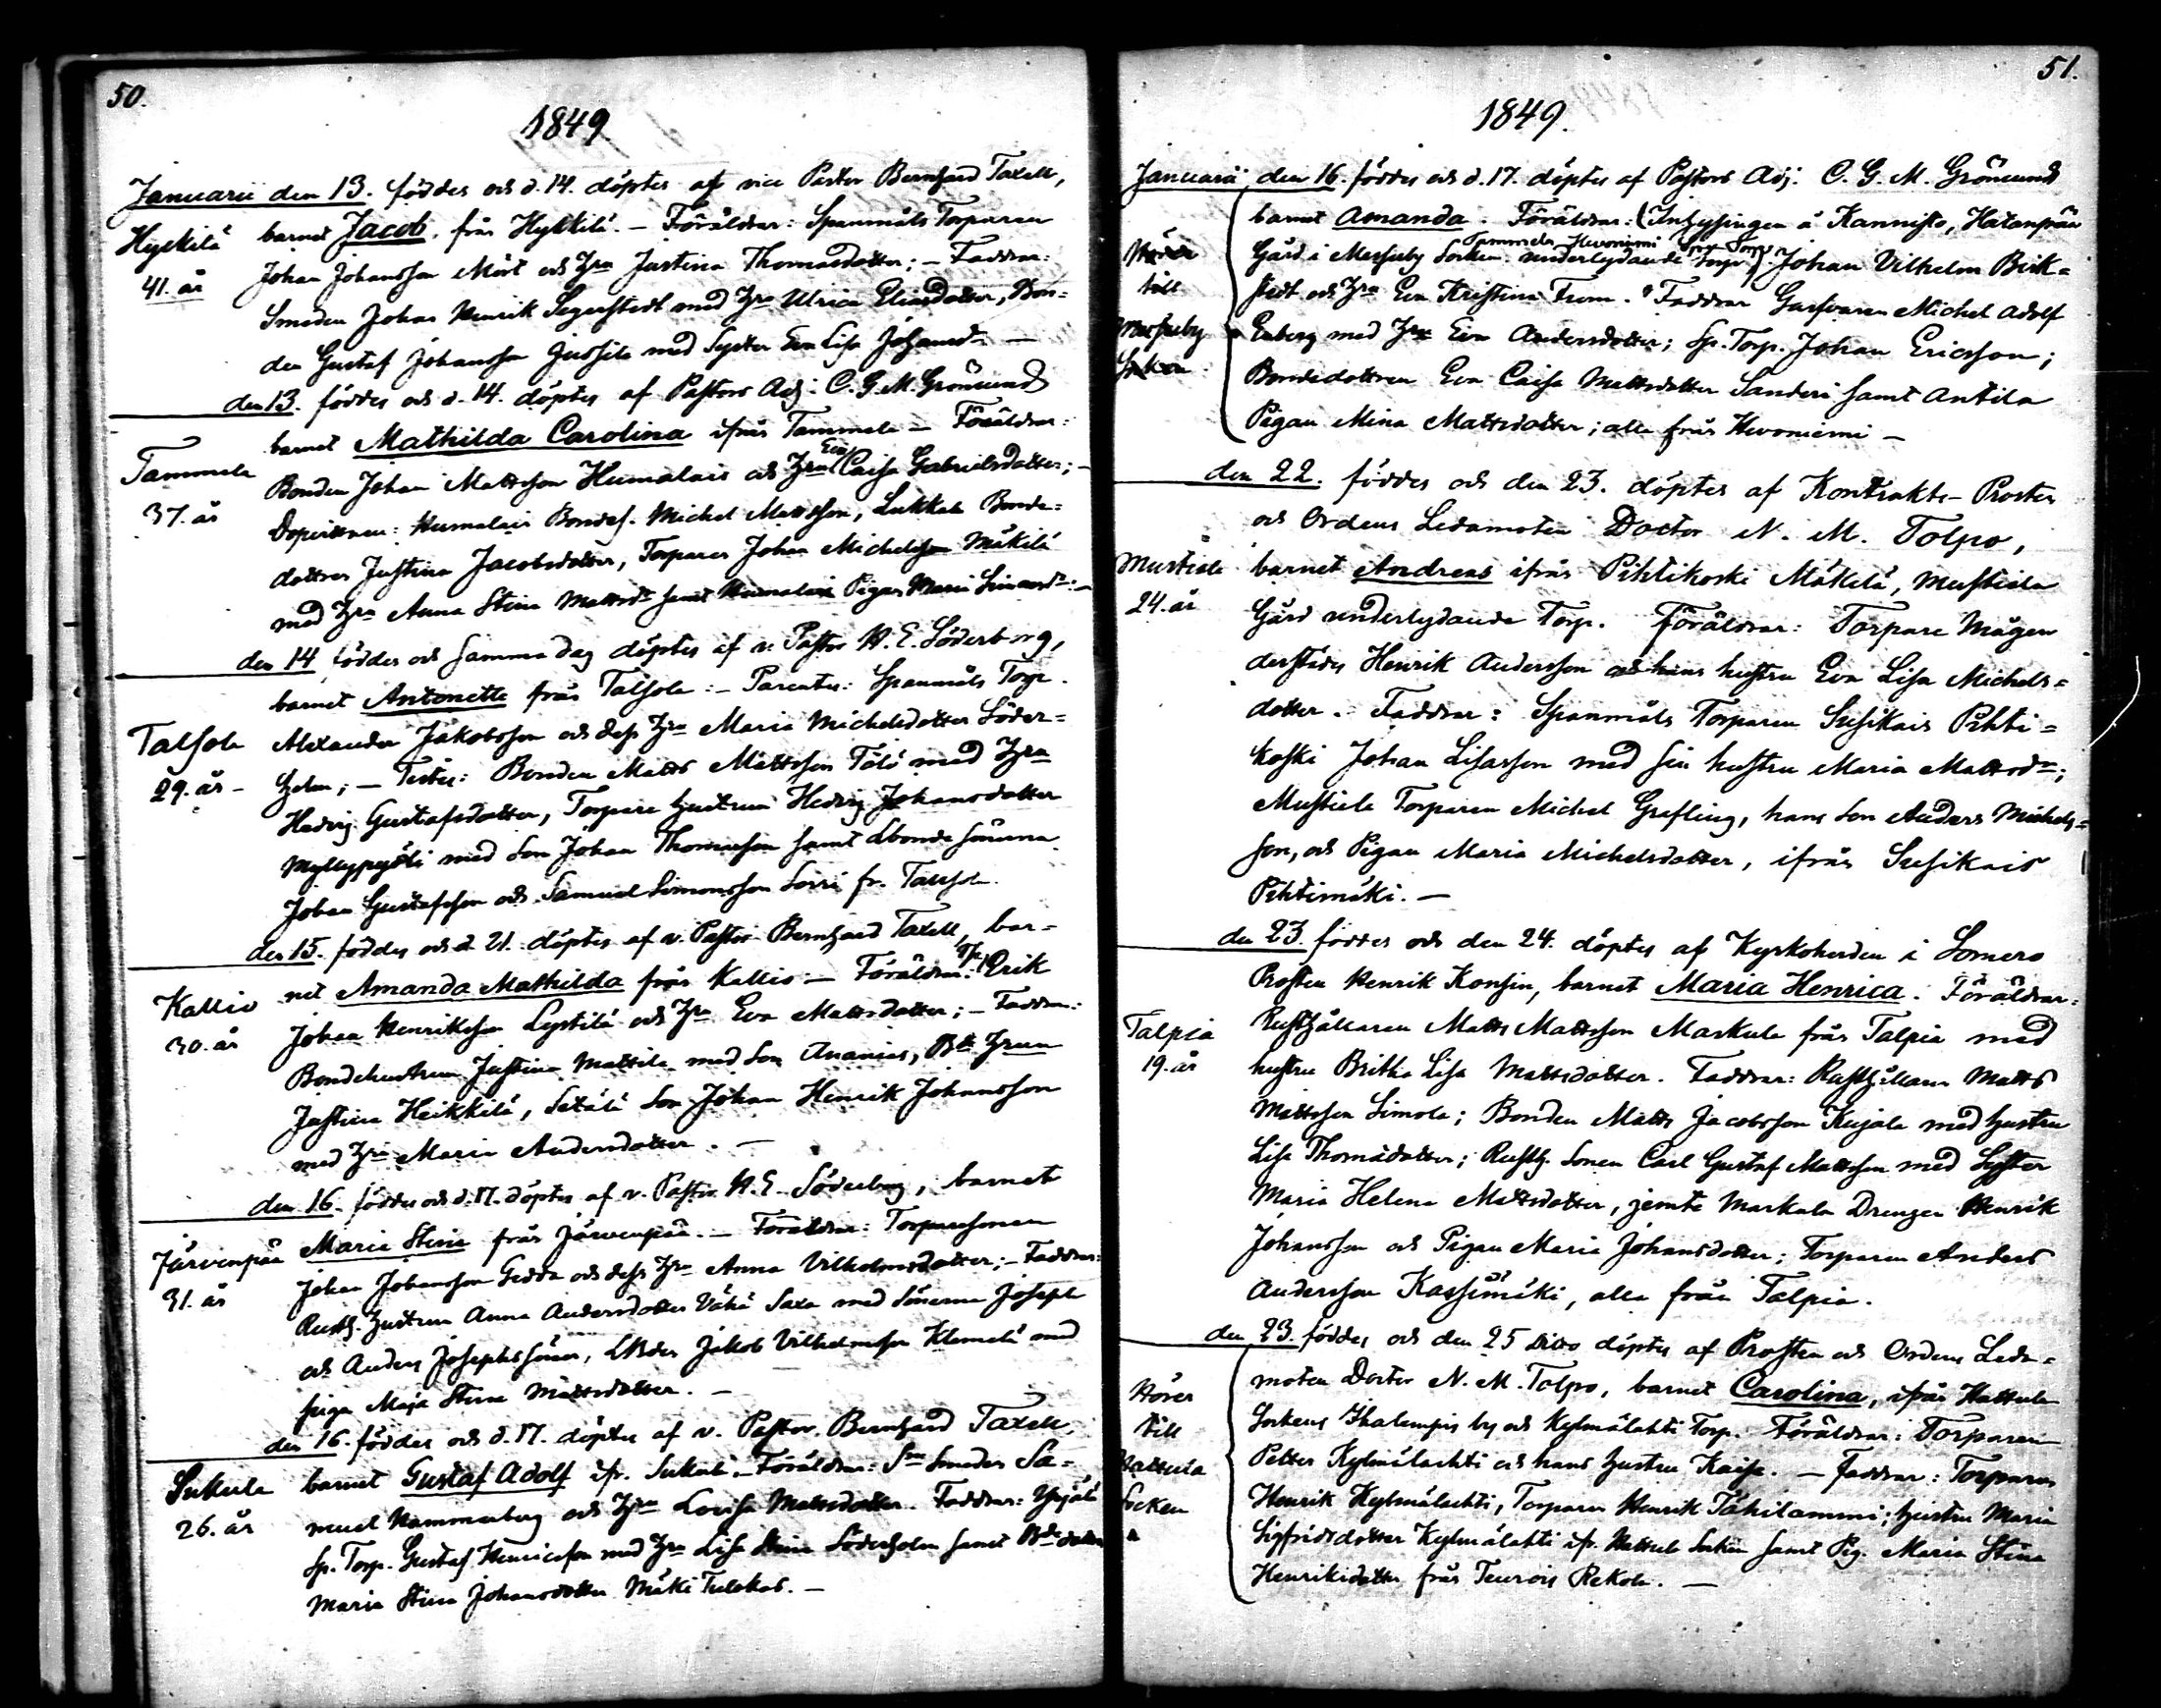 50.
1849
Januarii den 13. föddes och d. 14. döptes af vice Pastor Bernhard Taxell,
Hykkilä
41. år
barnet Jacob, från Hykkilä. — Föräldrar: Spannmåls Torparen
Johan Johansson Mört och Hru Justina Thomasdotter; — Faddrar:
Smeden Johan Henrik Segerstedt med Hru Ulrica Eliasdotter, Bon=
den Gustaf Johansson Jussila med Syster Eva Lisa Johansdr —
den 13. föddes och d. 14. döptes af Pastors Adj. C. G. M. Grönmund
Tammela
37. år
barnet Mathilda Carolina ifrån Tammela — Föräldrar:
Bonden Johan Mattsson Humalais och Hru Eva Caisa Gabrielsdotter; —
Dopvittnen: Humalais Bondes. Michel Mattsson, Lukkala Bonde=
dottren Justina Jacobsdotter, Torparen Johan Michelsson Mäkilä
med Hru Anna Stina Mattsdr samt Humalais Pigan Maria Simonsdr: —
den 14 föddes och samma dag döptes af v. Pastor H. E. Söderborg,
Talsola
29. år —
barnet Antonette från Talsola: — Parentes: Spannmåls Torp.
Alexander Jakobsson och dess Hru Maria Michelsdotter Söder=
holm; — Testes: Bonden Matts Mattsson Tölö med Hru
Hedvig Gustafsdotter, Torpare hustrun Hedvig Johansdotter
Myllypyöli med Son Johan Thomasson samt Bonde sönerna
Johan Gustafsson och Samuel Simonsson Sorri fr. Talsola.
den 15. föddes och d. 21. döptes af v. Pastor Bernhard Taxell, bar=
Kallio
30. år
net Amanda Mathilda från Kallio — Föräldrar: Erik
Johan Henriksson Lystilä och Hru Eva Mattsdotter; — Faddrar:
Bondehustrun Justina Mattila med Son Ananias, Bde Hrun
Justina Heikkilä, Setälä Son Johan Henrik Johansson
med Hru Maria Andersdotter. —
den 16. föddes och d. 17. döptes af v. Pastor H. E. Söderborg, barnet
Järvenpää
31. år
Maria Stina från Järvenpää. — Föräldrar: Torparesonen
Johan Johansson Gedda och dess Hru Anna Vilhelmsdotter; — Faddrar:
Rusth. hustrun Anna Andersdotter Vähä Saxa med Sönerna Joseph
och Anders Josephssöner, Jakob Vilhelmsson Klemelä med
piga Maja Stina Mattsdotter. —
den 16. föddes och d. 17. döptes af v. Pastor Bernhard Taxell,
Sukula
26. år
barnet Gustaf Adolf ifr. Sukula. — Föräldrar: Sn Smeden Sa=
muel Hammarberg och Hru Lovisa Mattsdotter. Faddrar: Ypäjä
Sp. Torp. Gustaf Henricsson med Hru Lisa Stina Söderholm samt Bde dottren
Maria Stina Johansdotter Mäki Tulokas. —
51.
1849.
Januarii den 16. föddes och d. 17. döptes af Pastors Adj. C. G. M. Grönmund
Hörer
till
Messuby
Socken
barnet Amanda. Föräldrar: (Inhysingen å Kannisto, Hatanpää
Gård i Messuby Socken underlydande Torp) Johan Vilhelm Birk=
Tammela Hevoniemi
stedt och Hru Eva Kristina From. Faddrar Garfvaren Michel Adolf
Enberg med Hru Eva Andersdotter; Sp. Torp. Johan Ericsson;
Bondedottren Eva Caisa Mattsdotter Sanderi samt Antila
Pigan Mina Mattsdotter; alla från Hevoniemi —
den 22. föddes och den 23. döptes af Kontrakts-Prosten
och Ordens Ledamoten Doctor N. M. Tolpo,
Mustiala
24. år
barnet Andreas ifrån Pihtikoski Mäkilä, Mustiala
Gård underlydande Torp. Föräldrar: Torpare Mågen
derstädes Henrik Andersson och hans hustru Eva Lisa Michels=
dotter. Faddrar: Spannmåls Torparen Susikais Pihti=
koski Johan Lisasson med sin hustru Maria Mattsdr;
Mustiala Torparen Michel Grefling, hans Son Anders Michels=
son, och Pigan Maria Michelsdotter, ifrån Susikais
Pihtimäki. —
den 23. föddes och den 24. döptes af Kyrkoherden i Somero
Talpia
19. år
Prosten Henrik Konsin, barnet Maria Henrica. Föräldrar:
Rusthållaren Matts Mattsson Markula från Talpia med
hustru Britha Lisa Mattsdotter. Faddrar: Rusthållaren Matts
Mattsson Simola; Bonden Matts Jacobsson Kujala med hustru
Lisa Thomasdotter; Rusth. Sonen Carl Gustaf Mattsson med Syster
Maria Helena Mattsdotter, jemte Markula Drengen Henrik
Johansson och Pigan Maria Johansdotter; Torparen Anders
Andersson Kassimäki, alla från Talpia.
den 23. föddes och den 25 dito döptes af Prosten och Ordens Leda=
Hörer
till
Hattula
Socken
moten Doctor N. M. Tolpo, barnet Carolina, ifrån Hattula
Sockens Ihalempis by och Kylmälahti Torp. Föräldrar: Torparen
Petter Kylmälachti och hans hustru Kaisa. — Faddrar: Torparen
Henrik Kylmälachti, Torparen Henrik Tähilammi; hustru Maria
Sigfridsdotter Kylmälahti ifr. Hattula Socken samt Pig. Maria Stina
Henriksdotter från Teurois Rekola. —